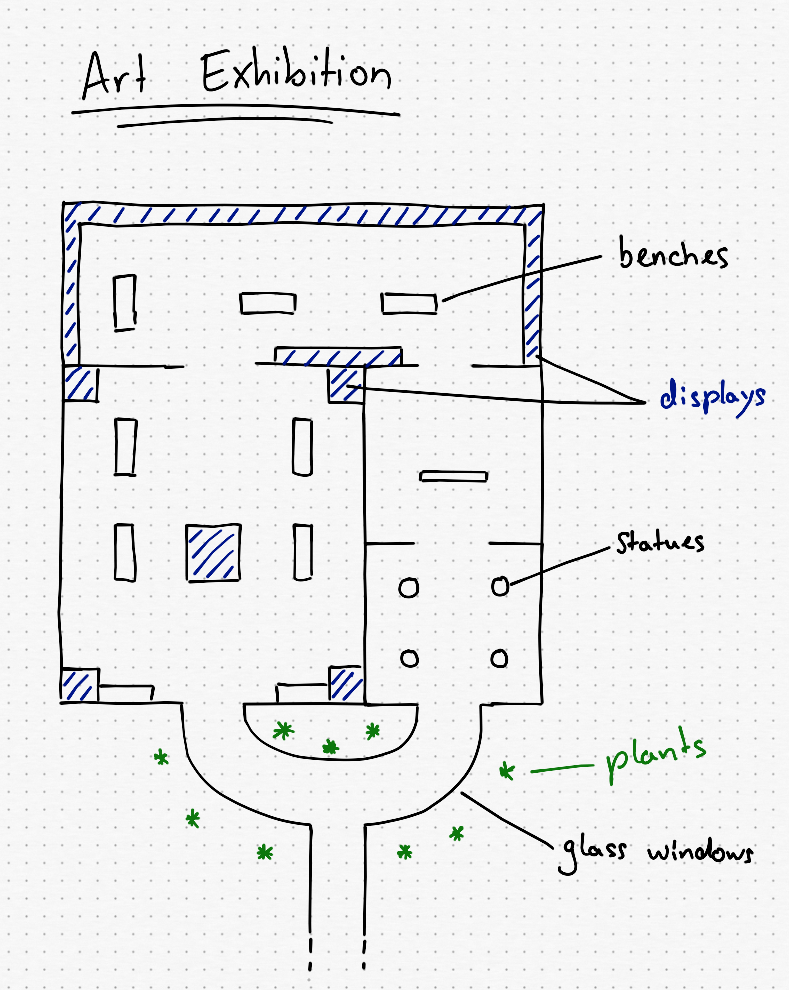 Art Exhibition
benches
displays
Statues
plants
glass windows